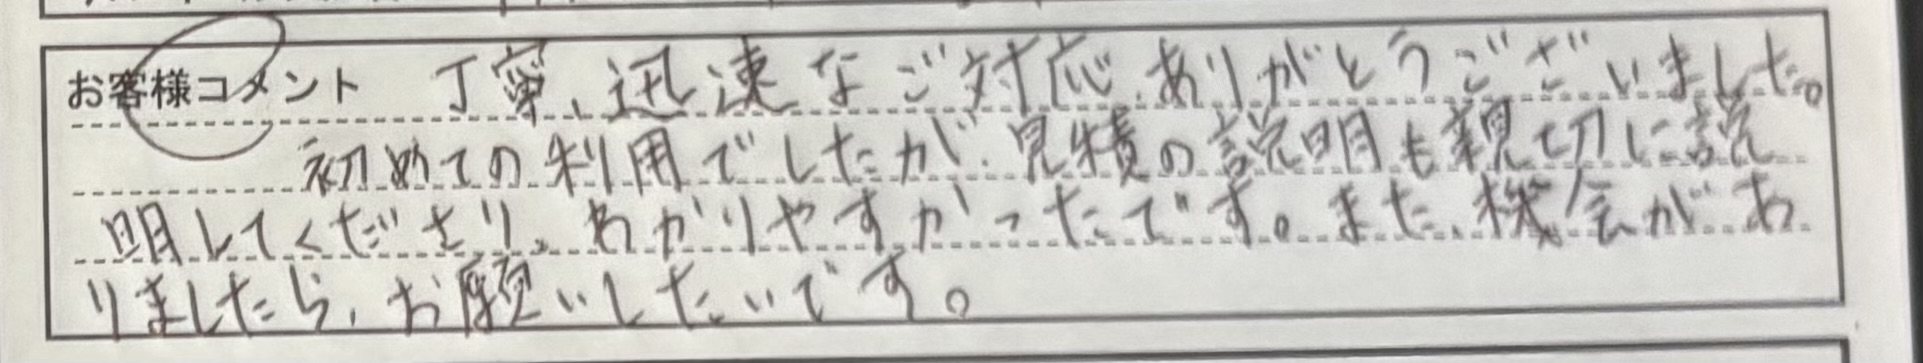 お客様コメント 丁寧、迅速なご対応、ありがとうございました。
初めての利用でしたが、見積の説明も親切に説
明してくださり、わかりやすかったです。また、機会があ
りましたら、お願いしたいです。